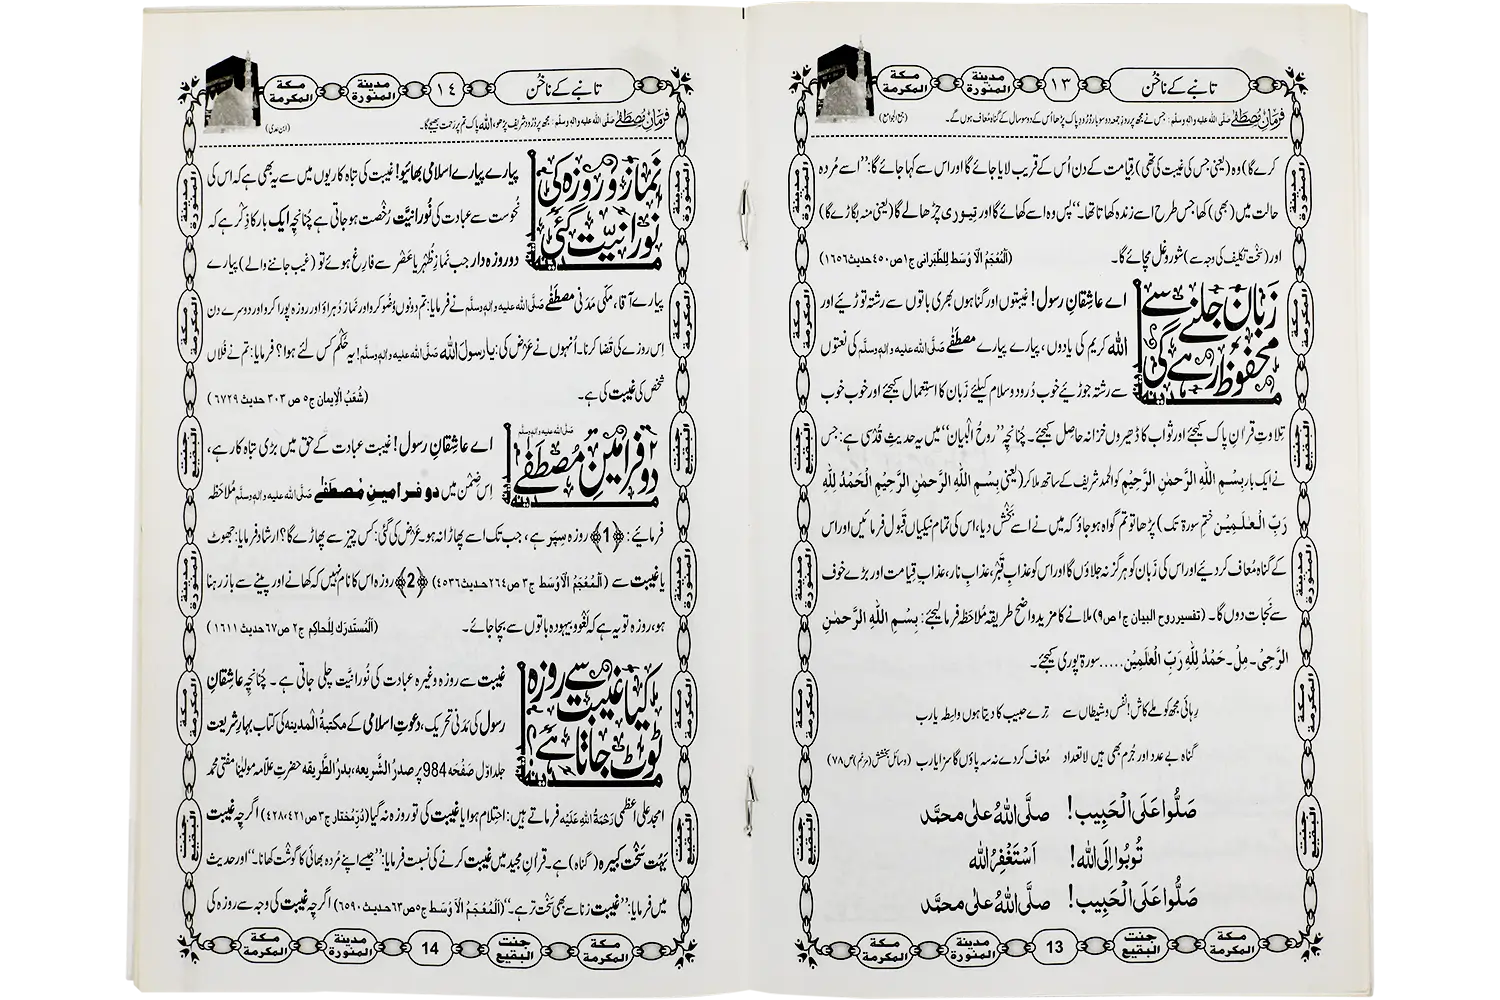 تانبے کے ناخُن
١٣
مدينة المنورة
مكة المكرمة
فرمانِ مصطفٰے صلی اللہ علیہ والہٖ وسلم: جس نے مجھ پر روزِ جمعہ دو سو بار دُرُودِ پاک پڑھا اُس کے دو سو سال کے گناہ مُعاف ہوں گے۔ (جمع الجوامع)
کرے گا) وہ (یعنی جس کی غیبت کی تھی) قِیامت کے دن اُس کے قریب لایا جائے گا اور اس سے کہا جائے گا: ’’اسے مُردہ
حالت میں (بھی) کھا جس طرح اسے زندہ کھاتا تھا۔‘‘ پس وہ اسے کھائے گا اور تیوری چڑھالے گا (یعنی منہ بگاڑے گا)
اور (سَخْت تکلیف کی وجہ سے) شور و غل مچائے گا۔ (اَلْمُعْجَمُ الْاَوْسَط لِلطَّبَرانی ج۱ ص۴۵۰ حدیث ۱۶۵۶)
زَبان جلنے سے
محفوظ رہے گی
مدينه
اے عاشقانِ رسول! غیبتوں اور گناہوں بھری باتوں سے رشتہ توڑیئے اور
اللہ کریم کی یادوں، پیارے پیارے مصطَفٰے صَلَّی اللہ علیہ واٰلہٖ وسلَّم کی نعتوں
سے رشتہ جوڑیئے خوب دُرود و سلام کیلئے زَبان کا استِعمال کیجئے اور خوب خوب
تِلاوتِ قراٰن پاک کیجئے اور ثواب کا ڈھیروں خزانہ حاصِل کیجئے۔ چُنانچِہ ’’روحُ الْبیان‘‘ میں یہ حدیثِ قُدسی ہے: جس
نے ایک بار بِسْمِ اللهِ الرَّحمٰنِ الرَّحِیْم کو الحمد شریف کے ساتھ ملا کر (یعنی بِسْمِ اللهِ الرَّحمٰنِ الرَّحِیْمِ الْحَمْدُ لِلّٰهِ
رَبِّ الْعٰلَمِیْن ختمِ سورۃ تک) پڑھا تو تم گواہ ہو جاؤ کہ میں نے اسے بَخْش دیا، اس کی تمام نیکیاں قَبول فرمائیں اور اس
کے گناہ مُعاف کر دیئے اور اس کی زَبان کو ہرگز نہ جلاؤں گا اور اس کو عذابِ قَبْر، عذابِ نار، عذابِ قِیامت اور بڑے خوف
سے نَجات دوں گا۔ (تفسیرِ روح البیان ج۱ ص۹) ملانے کا مزید واضح طریقہ ملاحظہ فرما لیجئے: بِسْمِ اللهِ الرَّحمٰنِ
الرَّحِیْ۔مِلْ۔حَمْدُ لِلّٰهِ رَبِّ الْعٰلَمِیْن..... سورۃ پوری کیجئے۔
رِہائی مجھ کو ملے کاش! نفس و شیطاں سے تِرے حبیب کا دیتا ہوں واسِطہ یارب
گناہ بے عدد اور جُرم بھی ہیں لاتعداد مُعاف کر دے نہ سہ پاؤں گا سزا یارب (وسائلِ بخشش (مرمّم) ص۷۸)
صَلُّوا عَلَى الْحَبِيب! صلَّى اللهُ علٰى محمَّد
تُوبُوا اِلَى الله! اَسْتَغْفِرُ الله
صَلُّوا عَلَى الْحَبِيب! صلَّى اللهُ علٰى محمَّد
مكة المكرمة
جنت البقيع
13
مدينة المنورة
مكة المكرمة
تانبے کے ناخُن
١٤
مدينة المنورة
مكة المكرمة
فرمانِ مصطفٰے صلی اللہ علیہ والہٖ وسلم: مجھ پر دُرُود شریف پڑھو، اللہ پاک تم پر رحمت بھیجے گا۔ (ابن عدی)
نَماز و روزہ کی
نورانیّت گئی
مدينه
پیارے پیارے اسلامی بھائیو! غیبت کی تباہ کاریوں میں سے یہ بھی ہے کہ اس کی
نُحوست سے عبادت کی نُورانیَّت رُخصت ہو جاتی ہے چُنانچِہ ایک بار کا ذِکْر ہے کہ
دو روزہ دار جب نَمازِ ظُہر یا عَصْر سے فارِغ ہوئے تو (غیب جاننے والے) پیارے
پیارے آقا، مکّی مَدَنی مصطَفٰے صَلَّی اللہ علیہ واٰلہٖ وسلَّم نے فرمایا: تم دونوں وُضو کرو اور نَماز دُہراؤ اور روزہ پورا کرو اور دوسرے دن
اِس روزے کی قضا کرنا۔ اُنہوں نے عَرْض کی: یا رسولَ اللہ صَلَّی اللہ علیہ واٰلہٖ وسلَّم! یہ حُکْم کس لئے ہوا؟ فرمایا: تم نے فُلاں
شَخْص کی غیبت کی ہے۔ (شُعَبُ الْاِیمان ج۵ ص ۳۰۳ حدیث ۶۷۲۹)
۲ دو فرامینِ مُصطَفٰے صلی اللہ علیہ والہٖ وسلم
مدينه
اے عاشقانِ رسول! غیبت عبادت کے حق میں بڑی تباہ کار ہے،
اِس ضِمْن میں دو فرامینِ مُصطَفٰے صَلَّی اللہ علیہ واٰلہٖ وسلَّم مُلاحَظہ
فرمائیے: ﴿1﴾ روزہ سِپَر ہے، جب تک اسے پھاڑا نہ ہو۔ عَرْض کی گئی: کس چیز سے پھاڑے گا؟ ارشاد فرمایا: جھوٹ
یا غیبت سے (اَلْمُعْجَمُ الْاَوْسَط ج۳ ص۲۶۴ حدیث ۴۵۳۶) ﴿2﴾ روزہ اس کا نام نہیں کہ کھانے اور پینے سے باز رہنا
ہو، روزہ تو یہ ہے کہ لَغْو و بیہودہ باتوں سے بچا جائے۔ (اَلْمُستَدرَک لِلْحاکِم ج۲ ص۶۷ حدیث ۱۶۱۱)
کیا غیبت سے روزہ
ٹوٹ جاتا ہے؟
مدينه
غیبت سے روزہ وغیرہ عبادت کی نُورانیَّت چلی جاتی ہے۔ چُنانچِہ عاشِقانِ
رسول کی مَدَنی تحریک، دعوتِ اسلامی کے مکتبۃُ الْمدینہ کی کتاب بہارِ شریعت
جلد اوّل صَفْحَہ 984 پر صدرُ الشَّریعہ، بدرُ الطَّریقہ حضرتِ علّامہ مولیٰنا مفتی محمد
امجد علی اعظمی رَحْمَۃُ اللہِ عَلَیْہ فرماتے ہیں: احتِلام ہوا یا غیبت کی تو روزہ نہ گیا (دُرِّمُختار ج۳ ص۴۲۱،۴۲۸) اگرچِہ غیبت
بَہُت سَخْت کبیرہ (گناہ) ہے۔ قراٰنِ مجید میں غیبت کرنے کی نسبت فرمایا: ’’جیسے اپنے مُردہ بھائی کا گوشْت کھانا۔‘‘ اور حدیث
میں فرمایا: ’’غیبت زِنا سے بھی سَخْت تر ہے۔‘‘ (اَلْمُعْجَمُ الْاَوْسَط ج۵ ص۶۳ حدیث ۶۵۹۰) اگرچِہ غیبت کی وجہ سے روزہ کی
مكة المكرمة
جنت البقيع
14
مدينة المنورة
مكة المكرمة